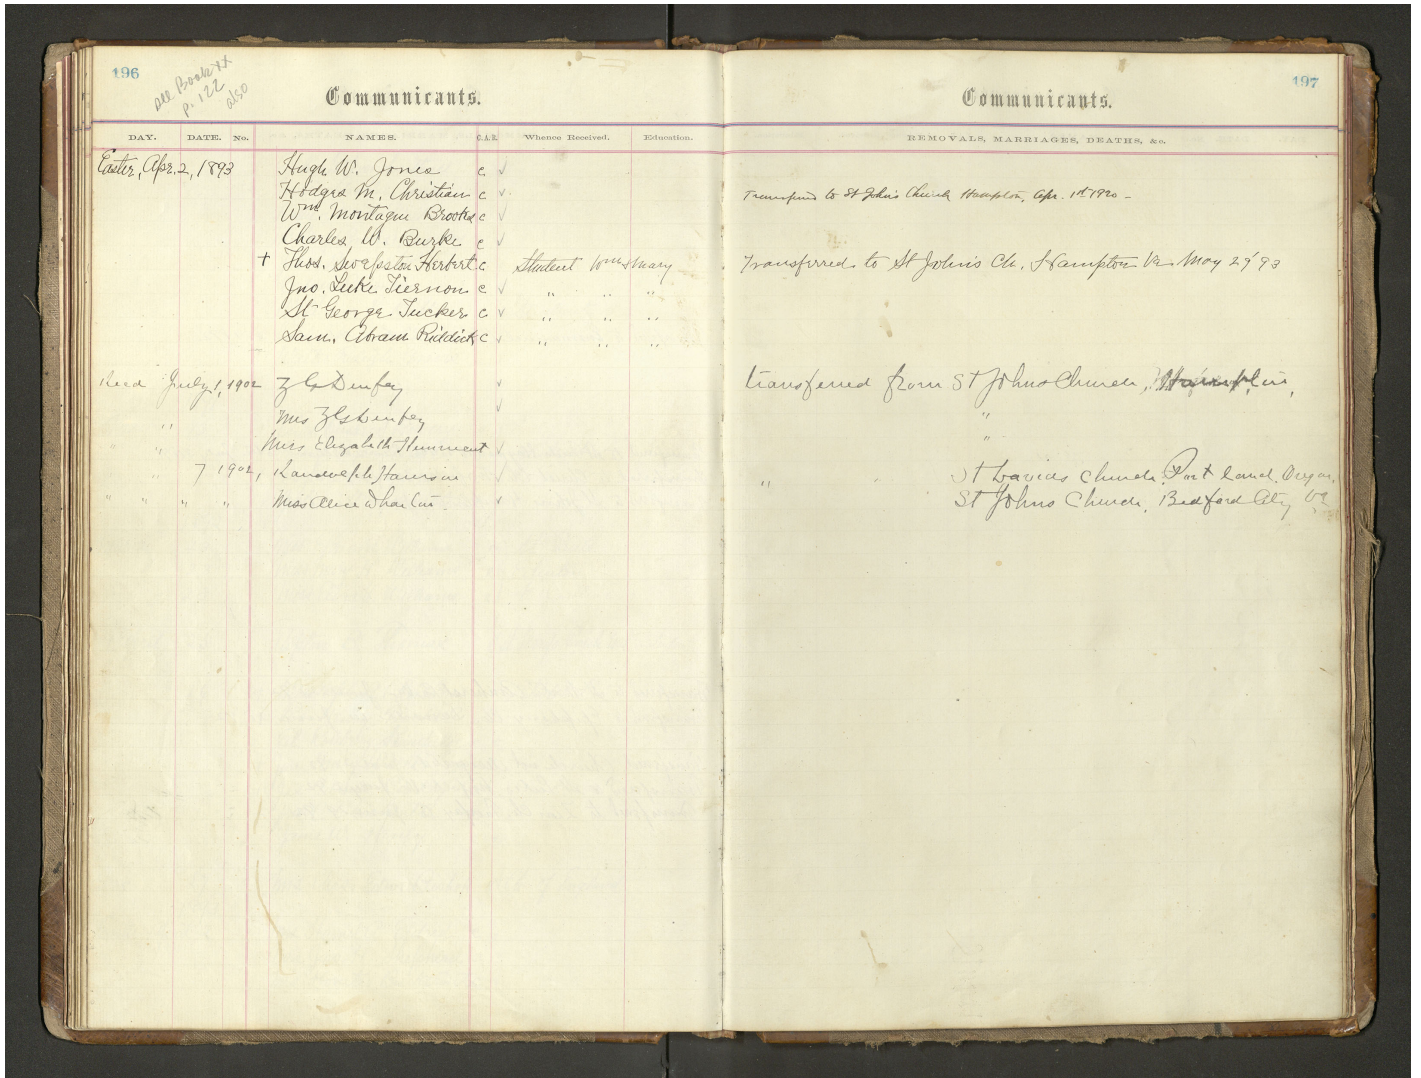 196
see Book XX
p. 122
also
Communicants.
DAY. DATE. No. NAMES. C.A.R. Whence Received. Education.
Easter, Apr. 2, 1893 Hugh W. Jones c ✓
Hodges M. Christian c ✓
Wm. Montague Brooks c ✓
Charles W. Burke c ✓
+ Thos. Swepston Herbert c Student Wm & Mary
Jno. Luke Tiernon c ✓ " " "
St George Tucker c ✓ " " "
Sam. Abram Riddick c ✓ " " "
Recd July 1, 1902 Z G Dunfey ✓
" Mrs Z G Dunfey ✓
" " Miss Elizabeth ✓
" 7 1902, Randolph Harrison ✓
" " " " Miss Alice Wharton ✓
197
Communicants.
REMOVALS, MARRIAGES, DEATHS, &c.
Transferred to St John's Church Hampton, Apr. 1st 1920 –
Transferred to St John's Ch. Hampton Va May 29' 93
transferred from St Johns Church, Hampton,
"
"
" St Davids Church, Portland, Oregon,
St Johns Church, Bedford City Va